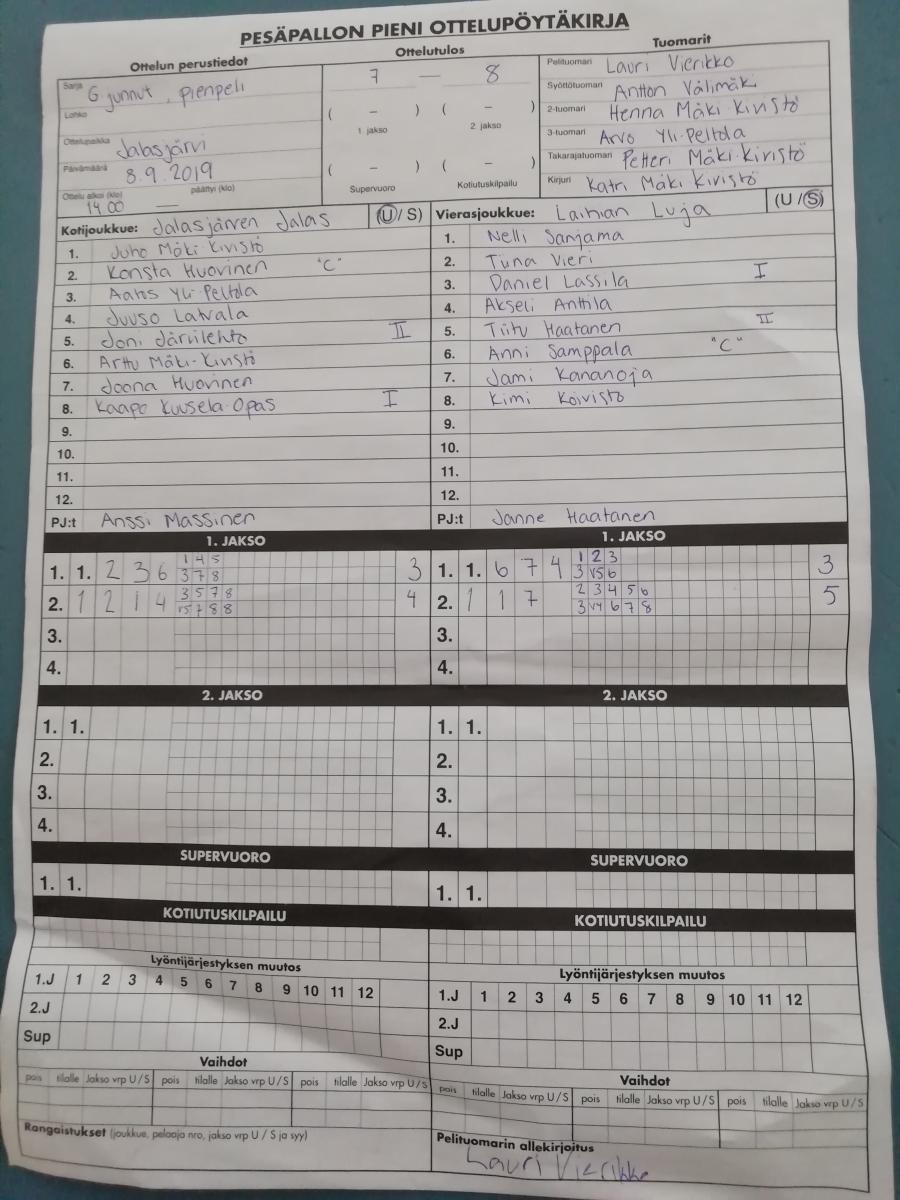 PESÄPALLON PIENI OTTELUPÖYTÄKIRJA
Ottelun perustiedot
Sarja G junnut, pienpeli
Lohko
Ottelupaikka Jalasjärvi
Päivämäärä 8.9.2019
Ottelu alkoi (klo) päättyi (klo)
14.00 —
Ottelutulos
7 – 8
( – ) ( – )
1. jakso 2. jakso
( – ) ( – )
Supervuoro Kotiutuskilpailu
Tuomarit
Pelituomari Lauri Vierikko
Syöttötuomari Antton Välimäki
2-tuomari Henna Mäki Kivistö
3-tuomari Arvo Yli-Peltola
Takarajatuomari Petteri Mäki-Kivistö
Kirjuri Katri Mäki Kivistö
Kotijoukkue: Jalasjärven Jalas (U / S)
1. Juho Mäki-Kivistö
2. Konsta Huovinen "C"
3. Aatos Yli-Peltola
4. Juuso Latvala
5. Joni Järvilehto II
6. Arttu Mäki-Kivistö
7. Joona Huovinen
8. Kaapo Kuusela-Opas I
9.
10.
11.
12.
PJ:t Anssi Massinen
Vierasjoukkue: Laihian Luja (U / S)
1. Nelli Sanjama
2. Tuna Vieri
3. Daniel Lassila I
4. Akseli Anttila
5. Tiitu Haatanen II
6. Anni Samppala "C"
7. Jami Kananoja
8. Kimi Koivisto
9.
10.
11.
12.
PJ:t Janne Haatanen
1. JAKSO
1. 1. 2 3 6 1 4 5 3
3 7 8
2. 1 2 1 4 3 5 7 8 4
v5 7 8 8
3.
4.
1. JAKSO
1. 1. 6 7 4 1 2 3 3
3 v5 6
2. 1 1 7 2 3 4 5 6 5
3 v4 6 7 8
3.
4.
2. JAKSO
1. 1.
2.
3.
4.
2. JAKSO
1. 1.
2.
3.
4.
SUPERVUORO
1. 1.
SUPERVUORO
1. 1.
KOTIUTUSKILPAILU
KOTIUTUSKILPAILU
Lyöntijärjestyksen muutos
1.J 1 2 3 4 5 6 7 8 9 10 11 12
2.J
Sup
Lyöntijärjestyksen muutos
1.J 1 2 3 4 5 6 7 8 9 10 11 12
2.J
Sup
Vaihdot
pois tilalle Jakso vrp U / S pois tilalle Jakso vrp U / S pois tilalle Jakso vrp U / S
Vaihdot
pois tilalle Jakso vrp U / S pois tilalle Jakso vrp U / S pois tilalle Jakso vrp U / S
Rangaistukset (joukkue, pelaaja nro, jakso vrp U / S ja syy)
Pelituomarin allekirjoitus
Lauri Vierikko